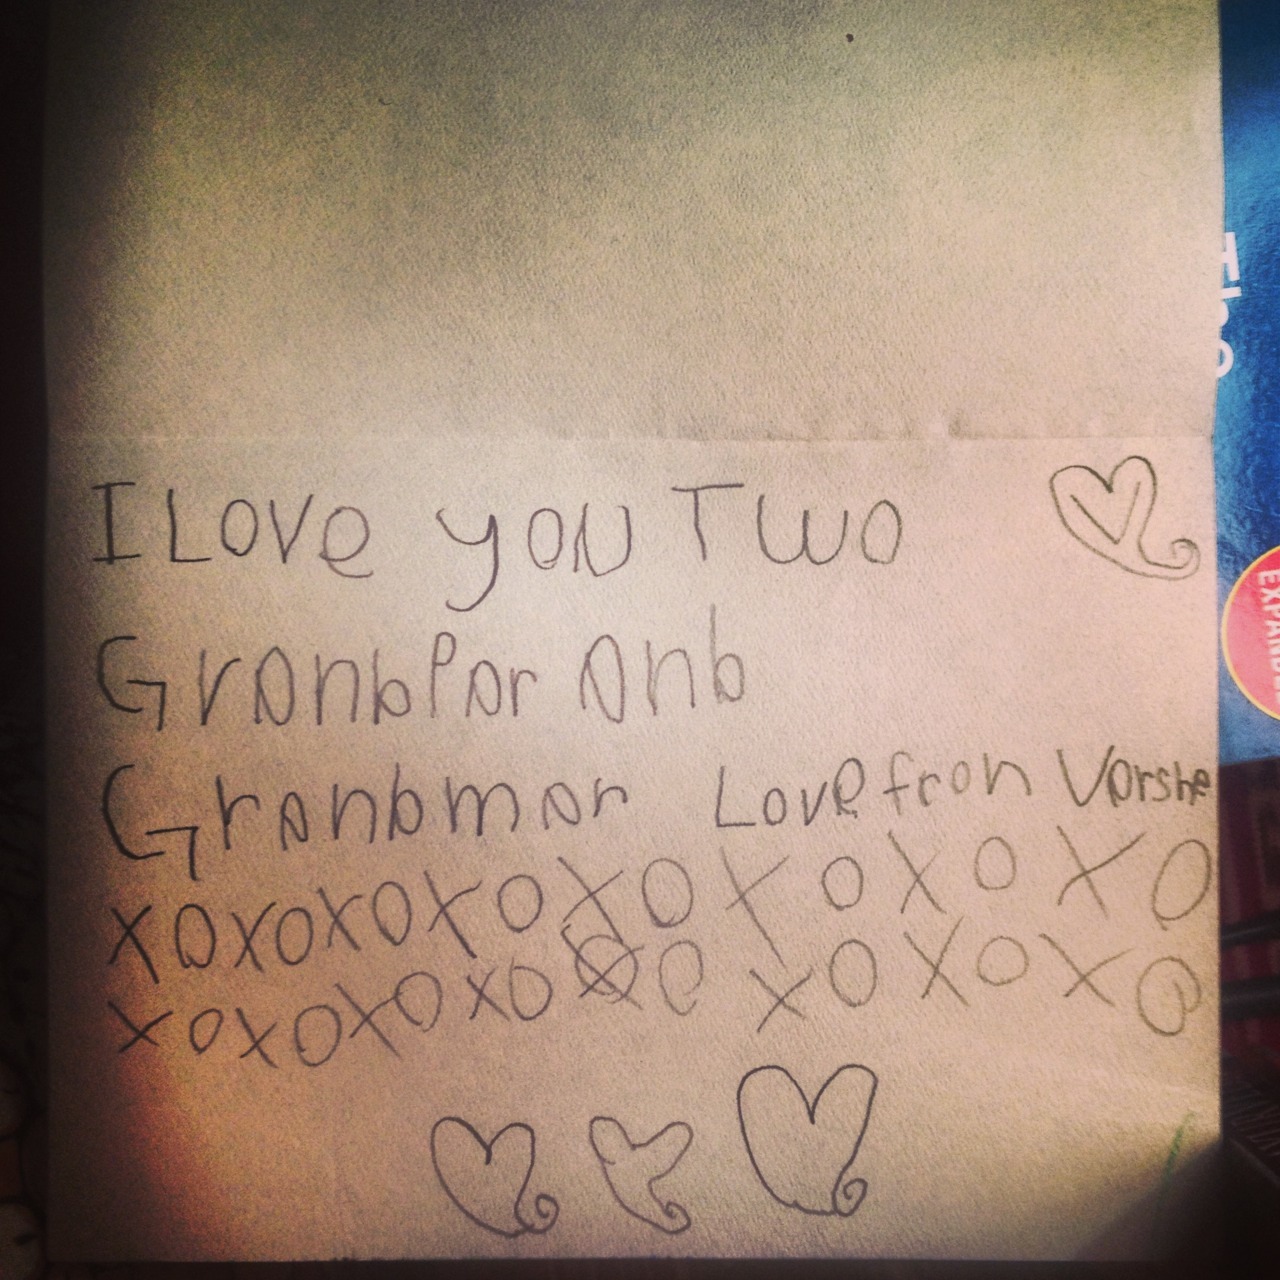 I Love you Two
GranbPar anb
Granbmar Love fron Varshe
XOXOXOXOXOXOXOXO
XOXOXOXOXOXOXOXO
The